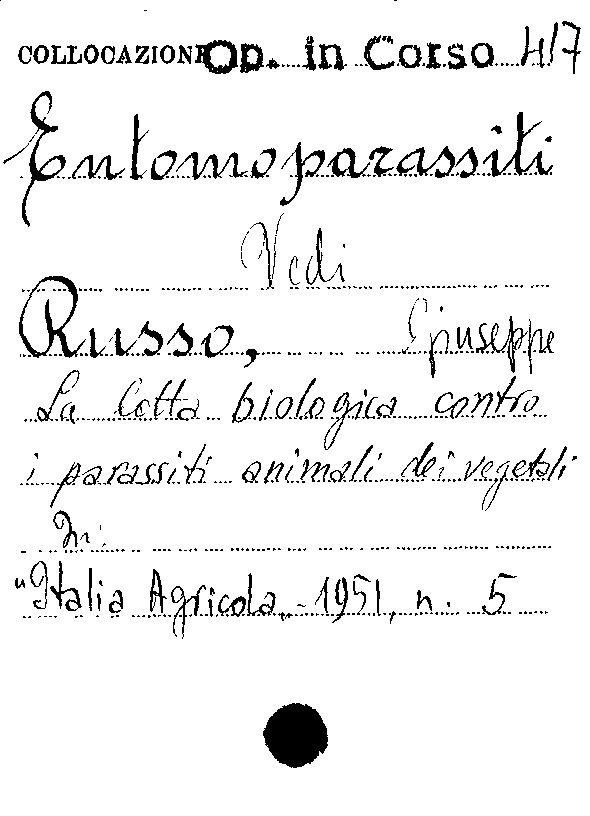 COLLOCAZIONE Op. in Corso 4/7
Entomoparassiti
Vedi
Russo, Giuseppe
La lotta biologica contro
i parassiti animali dei vegetali
In:
"Italia Agricola„ - 1951, n. 5